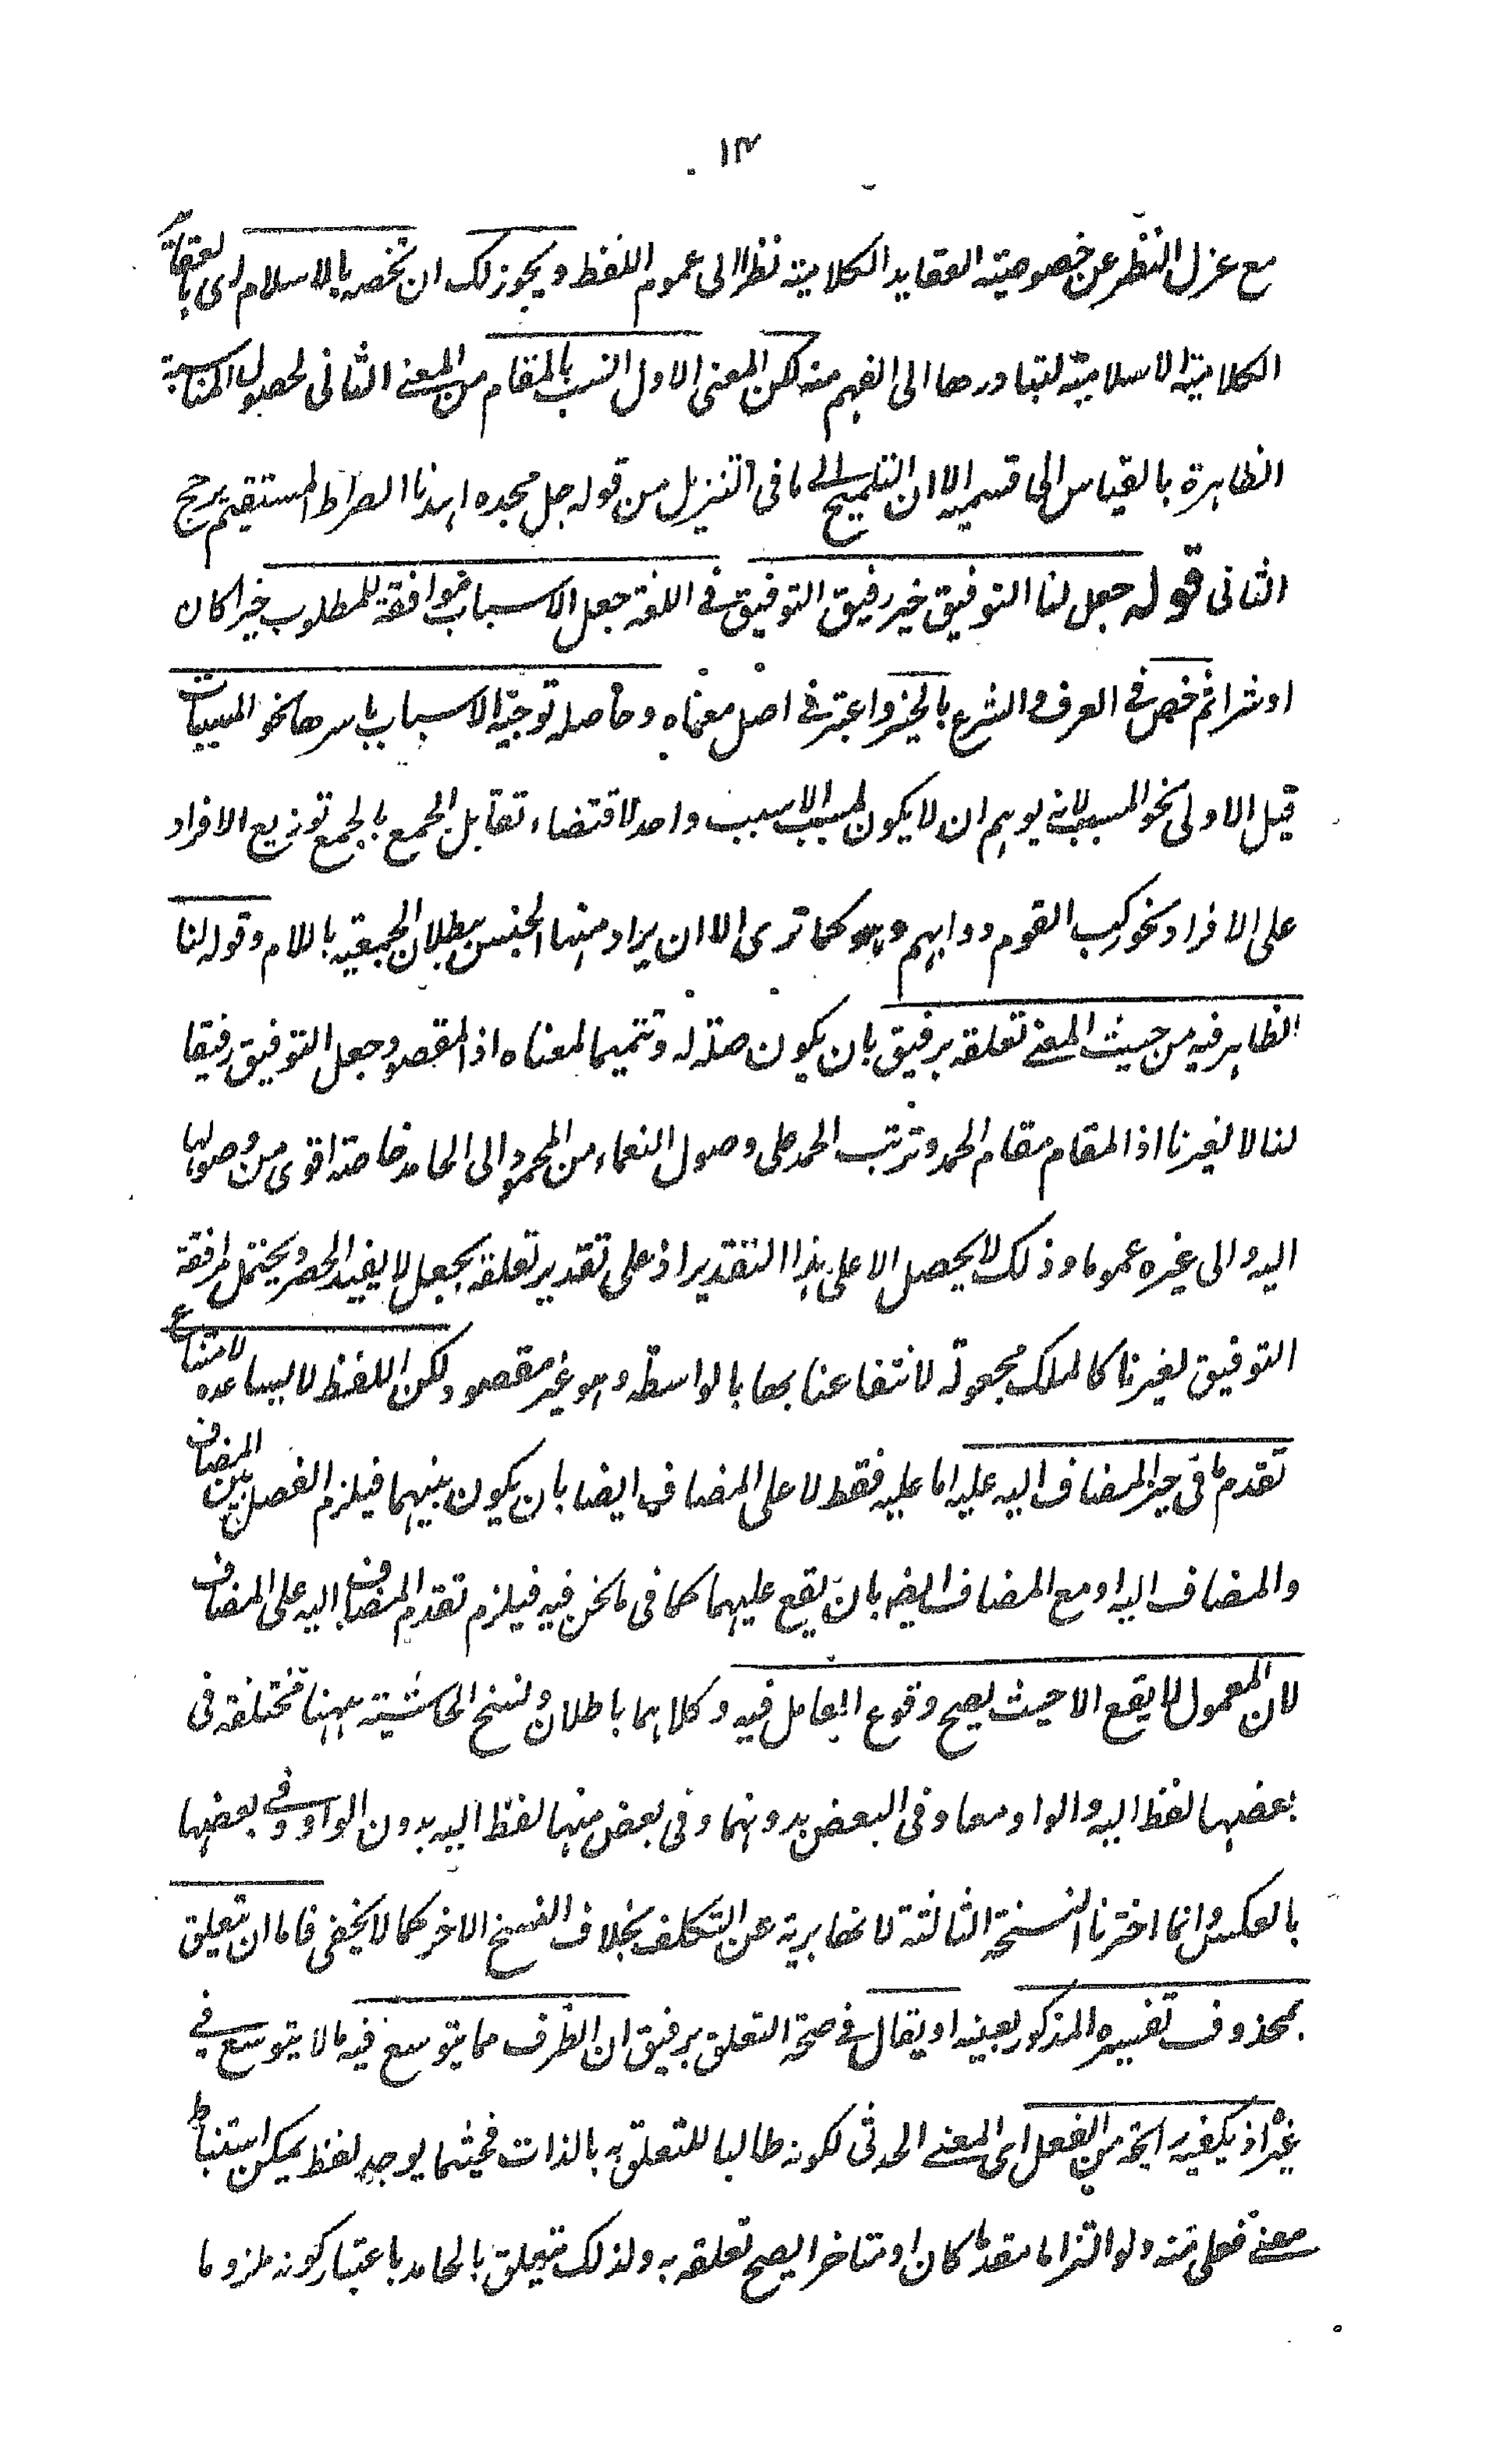 ١٣
مع عزل النظر عن خصوصية العقايد الكلامية نظرا الى عموم اللفظ ويجوز لك ان تخصه بالاسلام اى بالعقايد
الكلامية الاسلامية لتبادرها الى الفهم منه لكن المعنى الاول انسب بالمقام من المعنى الثانى لحصول المناسبة
الظاهرة بالقياس الى قسميه الا ان التلميح الى ما فى التنزيل من قوله جل مجده اهدنا الصراط المستقيم يرجح
الثانى قوله جعل لنا التوفيق خير رفيق التوفيق فى اللغة جعل الاسباب موافقة للمطلوب خيرا كان
او شرا ثم خص فى العرف والشرع بالخير واعتبر فى اصل معناه وحاصله توجيه الاسباب باسرها نحو المسببات
قيل الاولى نحو المسبب لانه يوهم ان لا يكون لمسبب الا سبب واحد لاقتضاء تقابل الجمع بالجمع توزيع الافراد
على الافراد نحو ركب القوم دوابهم وهو كما ترى الا ان يراد منها الجنس ببطلان الجمعية باللام وقوله لنا
الظاهر فيه من حيث المعنى تعلقه برفيق بان يكون صلة له وتتميما لمعناه اذ المقصود جعل التوفيق رفيقا
لنا لا لغيرنا اذ المقام مقام الحمد وترتب الحمد على وصول النعماء من المحمود الى الحامد خاصة اقوى من وصولها
اليه والى غيره عموما وذلك لا يحصل الا على هذا التقدير اذ على تقدير تعلقه بجعل لا يفيد الحصر ويحتمل مرافقة
التوفيق لغيرنا كالملك مجعولة لانتفاعنا بها بالواسطة وهو غير مقصود ولكن اللفظ لا يساعده لامتناع
تقدم ما فى حيز المضاف اليه عليه اما عليه فقط لا على المضاف ايضا بان يكون بينهما فيلزم الفصل بين المضاف
والمضاف اليه او مع المضاف ايضا بان يقع عليهما كما فى ما نحن فيه فيلزم تقدم المضاف اليه على المضاف
لان المعمول لا يقع الا حيث يصح وقوع العامل فيه وكلاهما باطلان ونسخ الحاشية ههنا مختلفة فى
بعضها لفظ اليه والواو معا وفى البعض بدونهما وفى بعض منها لفظ اليه بدون الواو وفى بعضها
بالعكس وانما اخترنا النسخة الثالثة لانها برية عن التكلف بخلاف النسخ الاخر كما لا يخفى فاما ان يتعلق
بمحذوف تفسيره المذكور بعينه او يقال فى صحة التعلق برفيق ان الظرف مما يتوسع فيه ما لا يتوسع فى
غيره اذ يكفيه رايحة من الفعل اى المعنى الحدثى لكونه طالبا للتعلق به بالذات فحيثما يوجد لفظ يمكن استنباط
معنى فعلى منه ولو التزاما متقدما كان او متاخرا يصح تعلقه به ولذلك يتعلق بالحامد باعتبار كونه ملزوما